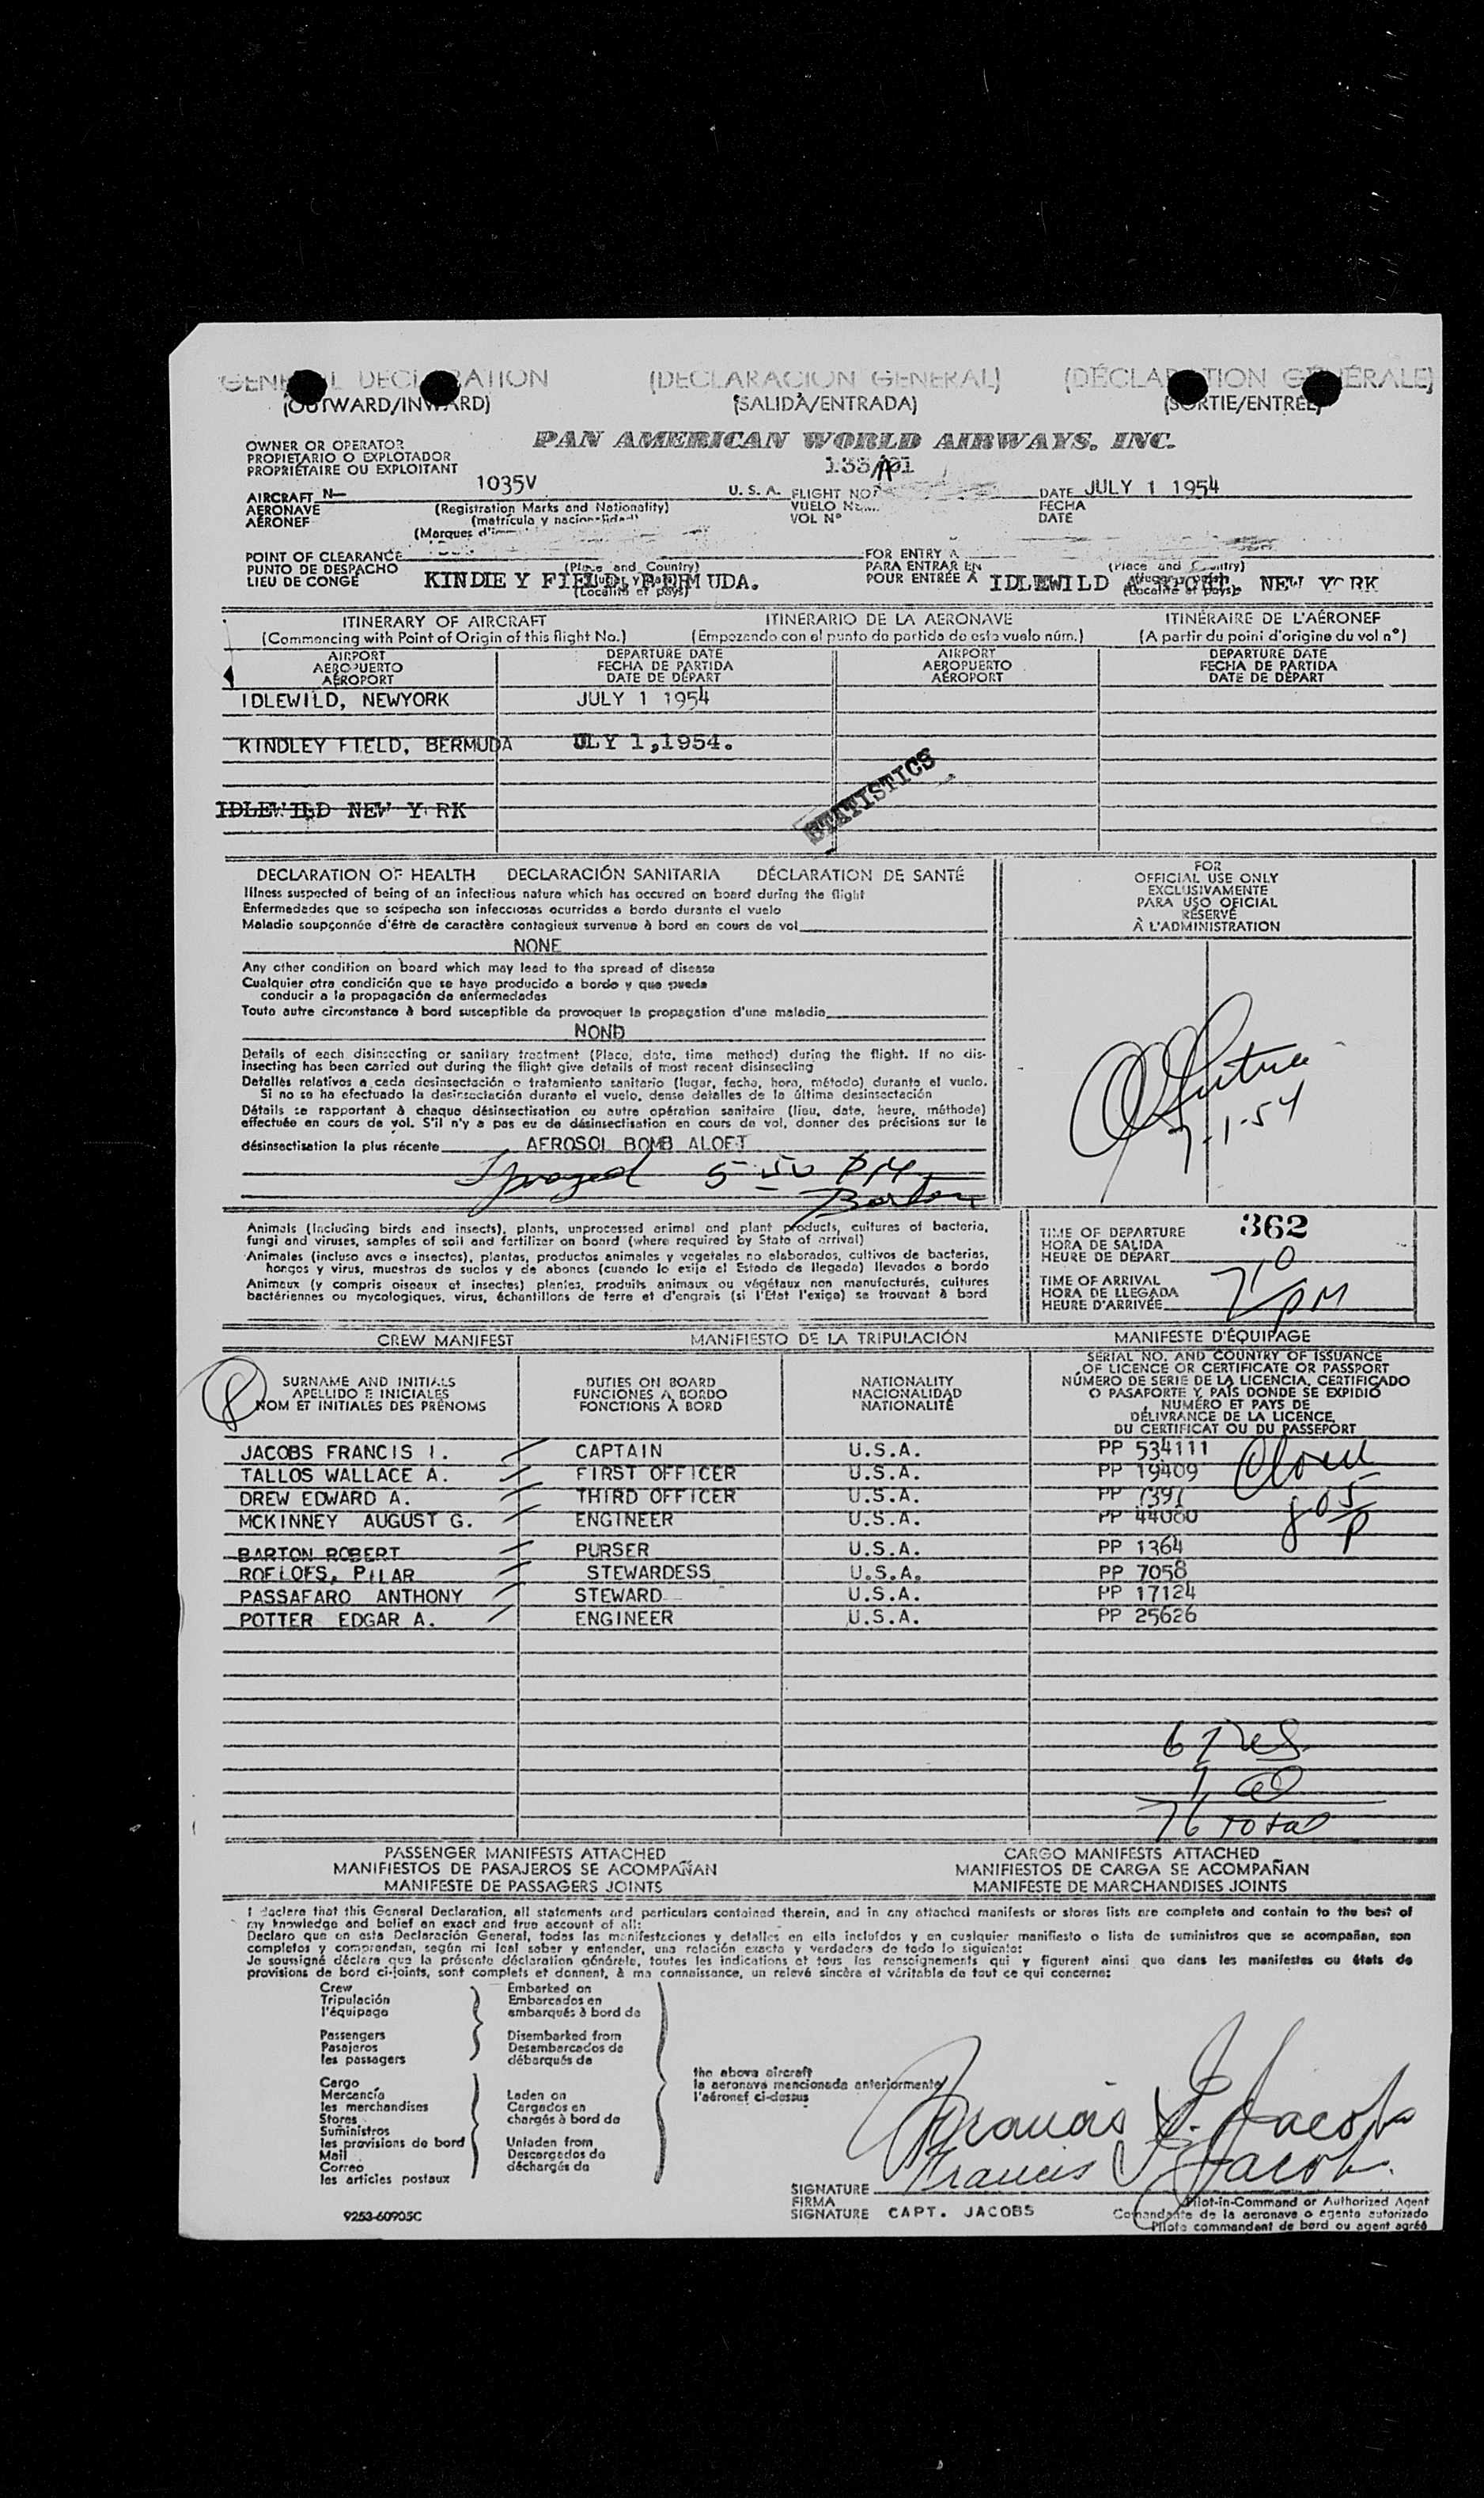 GENERAL DECLARATION (DECLARACION GENERAL) (DÉCLARATION GÉNÉRALE)
(OUTWARD/INWARD) (SALIDA/ENTRADA) (SORTIE/ENTRÉE)
OWNER OR OPERATOR
PROPIETARIO O EXPLOTADOR
PROPRIÉTAIRE OU EXPLOITANT
PAN AMERICAN WORLD AIRWAYS, INC.
AIRCRAFT N— 1035V U. S. A. FLIGHT NO. DATE JULY 1 1954
AERONAVE (Registration Marks and Nationality) VUELO FECHA
AÉRONEF (matrícula y nacionalidad) VOL Nº DATE
(Marques
POINT OF CLEARANCE FOR ENTRY A
PUNTO DE DESPACHO (Place and Country) PARA ENTRAR EN (Place and Country)
LIEU DE CONGÉ KINDLEY FIELD, BERMUDA. POUR ENTRÉE À IDLEWILD AIRPORT, NEW YORK
(Localité et pays) (Localité et pays)
ITINERARY OF AIRCRAFT ITINERARIO DE LA AERONAVE ITINÉRAIRE DE L'AÉRONEF
(Commencing with Point of Origin of this flight No.) (Empezando con el punto de partida de este vuelo núm.) (A partir du point d'origine du vol nº)
AIRPORT DEPARTURE DATE AIRPORT DEPARTURE DATE
AEROPUERTO FECHA DE PARTIDA AEROPUERTO FECHA DE PARTIDA
AÉROPORT DATE DE DÉPART AÉROPORT DATE DE DÉPART
IDLEWILD, NEWYORK JULY 1 1954
KINDLEY FIELD, BERMUDA ULY 1,1954.
STATISTICS
IDLEWILD NEW Y RK
DECLARATION OF HEALTH DECLARACIÓN SANITARIA DÉCLARATION DE SANTÉ
Illness suspected of being of an infectious nature which has occured on board during the flight
Enfermedades que se sospecha son infecciosas ocurridas a bordo durante el vuelo
Maladie soupçonnée d'être de caractère contagieux survenue à bord en cours de vol
NONE
Any other condition on board which may lead to the spread of disease
Cualquier otra condición que se haya producido a bordo y que pueda
conducir a la propagación de enfermedades
Toute autre circonstance à bord susceptible de provoquer la propagation d'une maladie
NOND
Details of each disinsecting or sanitary treatment (Place, date, time method) during the flight. If no dis-
insecting has been carried out during the flight give details of most recent disinsecting
Detalles relativos a cada desinsectación o tratamiento sanitario (lugar, fecha, hora, método) durante el vuelo.
Si no se ha efectuado la desinsectación durante el vuelo, dense detalles de la última desinsectación
Détails se rapportant à chaque désinsectisation ou autre opération sanitaire (lieu, date, heure, méthode)
effectuée en cours de vol. S'il n'y a pas eu de désinsectisation en cours de vol, donner des précisions sur la
désinsectisation la plus récente AEROSOL BOMB ALOFT
Sprayed 5:50 PM
Barton
FOR
OFFICIAL USE ONLY
EXCLUSIVAMENTE
PARA USO OFICIAL
RÉSERVÉ
À L'ADMINISTRATION
7-1-54
Animals (Including birds and insects), plants, unprocessed animal and plant products, cultures of bacteria,
fungi and viruses, samples of soil and fertilizer on board (where required by State of arrival)
Animales (incluso aves e insectos), plantas, productos animales y vegetales no elaborados, cultivos de bacterias,
hongos y virus, muestras de suelos y de abonos (cuando lo exija el Estado de llegada) llevados a bordo
Animaux (y compris oiseaux et insectes) plantes, produits animaux ou végétaux non manufacturés, cultures
bactériennes ou mycologiques, virus, échantillons de terre et d'engrais (si l'Etat l'exige) se trouvant à bord
TIME OF DEPARTURE 362
HORA DE SALIDA
HEURE DE DÉPART
TIME OF ARRIVAL
HORA DE LLEGADA
HEURE D'ARRIVÉE 7 10 PM
CREW MANIFEST MANIFIESTO DE LA TRIPULACIÓN MANIFESTE D'ÉQUIPAGE
8
SURNAME AND INITIALS DUTIES ON BOARD NATIONALITY
APELLIDO E INICIALES FUNCIONES A BORDO NACIONALIDAD
NOM ET INITIALES DES PRÉNOMS FONCTIONS À BORD NATIONALITÉ
SERIAL NO. AND COUNTRY OF ISSUANCE
OF LICENCE OR CERTIFICATE OR PASSPORT
NÚMERO DE SERIE DE LA LICENCIA, CERTIFICADO
O PASAPORTE Y PAÍS DONDE SE EXPIDIÓ
NUMÉRO ET PAYS DE
DÉLIVRANCE DE LA LICENCE,
DU CERTIFICAT OU DU PASSEPORT
JACOBS FRANCIS I. CAPTAIN U.S.A. PP 534111
TALLOS WALLACE A. FIRST OFFICER U.S.A. PP 19409
DREW EDWARD A. THIRD OFFICER U.S.A. PP 7397
MCKINNEY AUGUST G. ENGINEER U.S.A. PP 44080
805 P
BARTON ROBERT PURSER U.S.A. PP 1364
ROELOFS, PILAR STEWARDESS U.S.A. PP 7058
PASSAFARO ANTHONY STEWARD U.S.A. PP 17124
POTTER EDGAR A. ENGINEER U.S.A. PP 25626
76 total
PASSENGER MANIFESTS ATTACHED CARGO MANIFESTS ATTACHED
MANIFIESTOS DE PASAJEROS SE ACOMPAÑAN MANIFIESTOS DE CARGA SE ACOMPAÑAN
MANIFESTE DE PASSAGERS JOINTS MANIFESTE DE MARCHANDISES JOINTS
I declare that this General Declaration, all statements and particulars contained therein, and in any attached manifests or stores lists are complete and contain to the best of
my knowledge and belief an exact and true account of all:
Declaro que en esta Declaración General, todas las manifestaciones y detalles en ella incluídos y en cualquier manifiesto o lista de suministros que se acompañan, son
completos y comprenden, según mi leal saber y entender, una relación exacta y verdadera de todo lo siguiente:
Je soussigné déclare que la présente déclaration générale, toutes les indications et tous les renseignements qui y figurent ainsi que dans les manifestes ou états de
provisions de bord ci-joints, sont complets et donnent, à ma connaissance, un relevé sincère et véritable de tout ce qui concerne:
Crew Embarked on
Tripulación Embarcados en
l'équipage embarqués à bord de
Passengers Disembarked from
Pasajeros Desembarcados de
les passagers débarqués de
the above aircraft
la aeronave mencionada anteriormente
l'aéronef ci-dessus
Cargo
Mercancía Laden on
les merchandises Cargados en
Stores chargés à bord de
Suministros
les provisions de bord Unladen from
Mail Descargados de
Correo déchargés de
les articles postaux
Francis I. Jacobs
Francis I Jacobs
SIGNATURE
FIRMA
SIGNATURE CAPT. JACOBS
Pilot-in-Command or Authorized Agent
Comandante de la aeronave o agente autorizado
Pilote commandant de bord ou agent agréé
9253-60905C